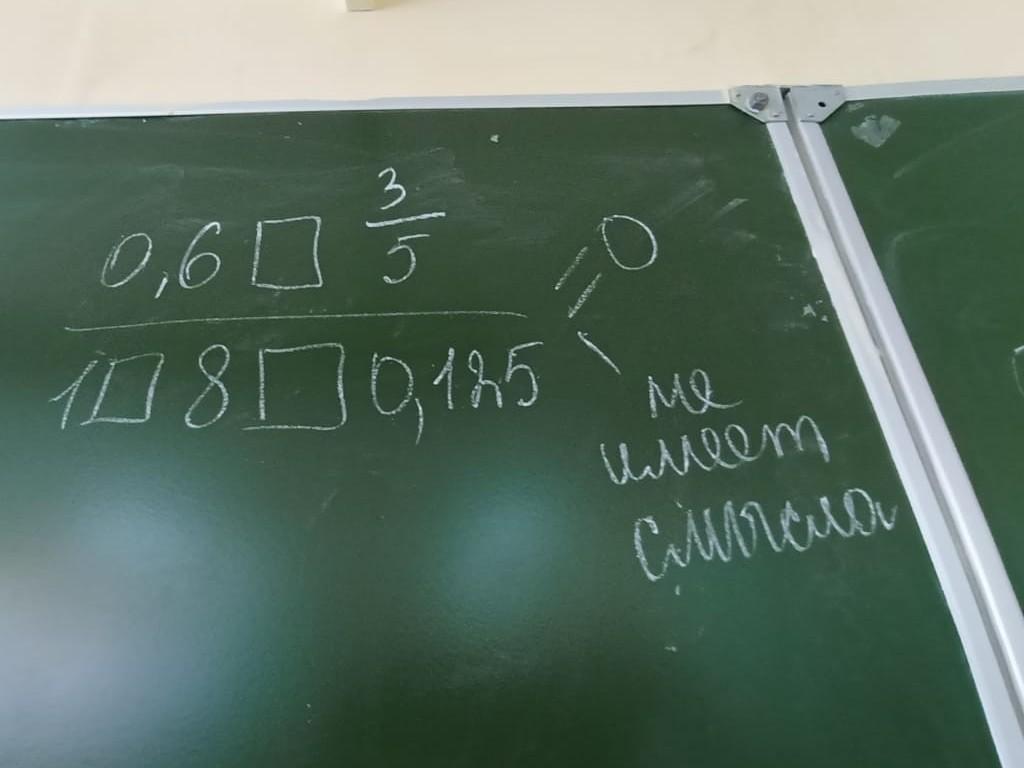 0,6 □ 3/5 = 0
1 □ 8 □ 0,125
не
имеет
смысла